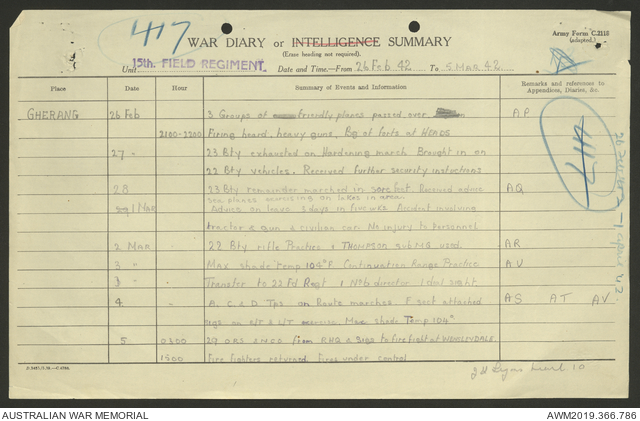 417
WAR DIARY or INTELLIGENCE SUMMARY
(Erase heading not required).
Army Form C.2118
(adapted.)
Unit 15th. FIELD REGIMENT. Date and Time.—From 26 Feb 42 To 5 MAR 42
Place Date Hour Summary of Events and Information Remarks and references to Appendices, Diaries, &c.
GHERANG 26 Feb 3 Groups of friendly planes passed over AP
2100-2300 Firing heard, heavy guns, of forts at HEADS
27 23 Bty exhausted on Hardening march Brought in on
22 Bty vehicles. Received further security instructions
28 23 Bty remainder marched in sore feet. Received advice AQ
sea planes on lakes in area
1 Mar Advice on leave 5 days in five wks. Accident involving
tractor & gun & civilian car. No injury to personnel
2 MAR 22 Bty rifle Practice & THOMPSON sub MG used. AR
3 " Max shade temp 104°F. Continuation Range Practice AV
3 " Transfer to 22 Fd Regt 1 No 6 director 1 dial sight
4 A, C & D Tps on Route marches. F sect attached AS AT AV
sigs on S/T & L/T exercise. Max shade Temp 104°
5 0300 29 ORS & NCO from RHQ & Sigs to fire fight at WENSLEYDALE
1500 Fire fighters returned fires under control
417
AUSTRALIAN WAR MEMORIAL
AWM2019.366.786